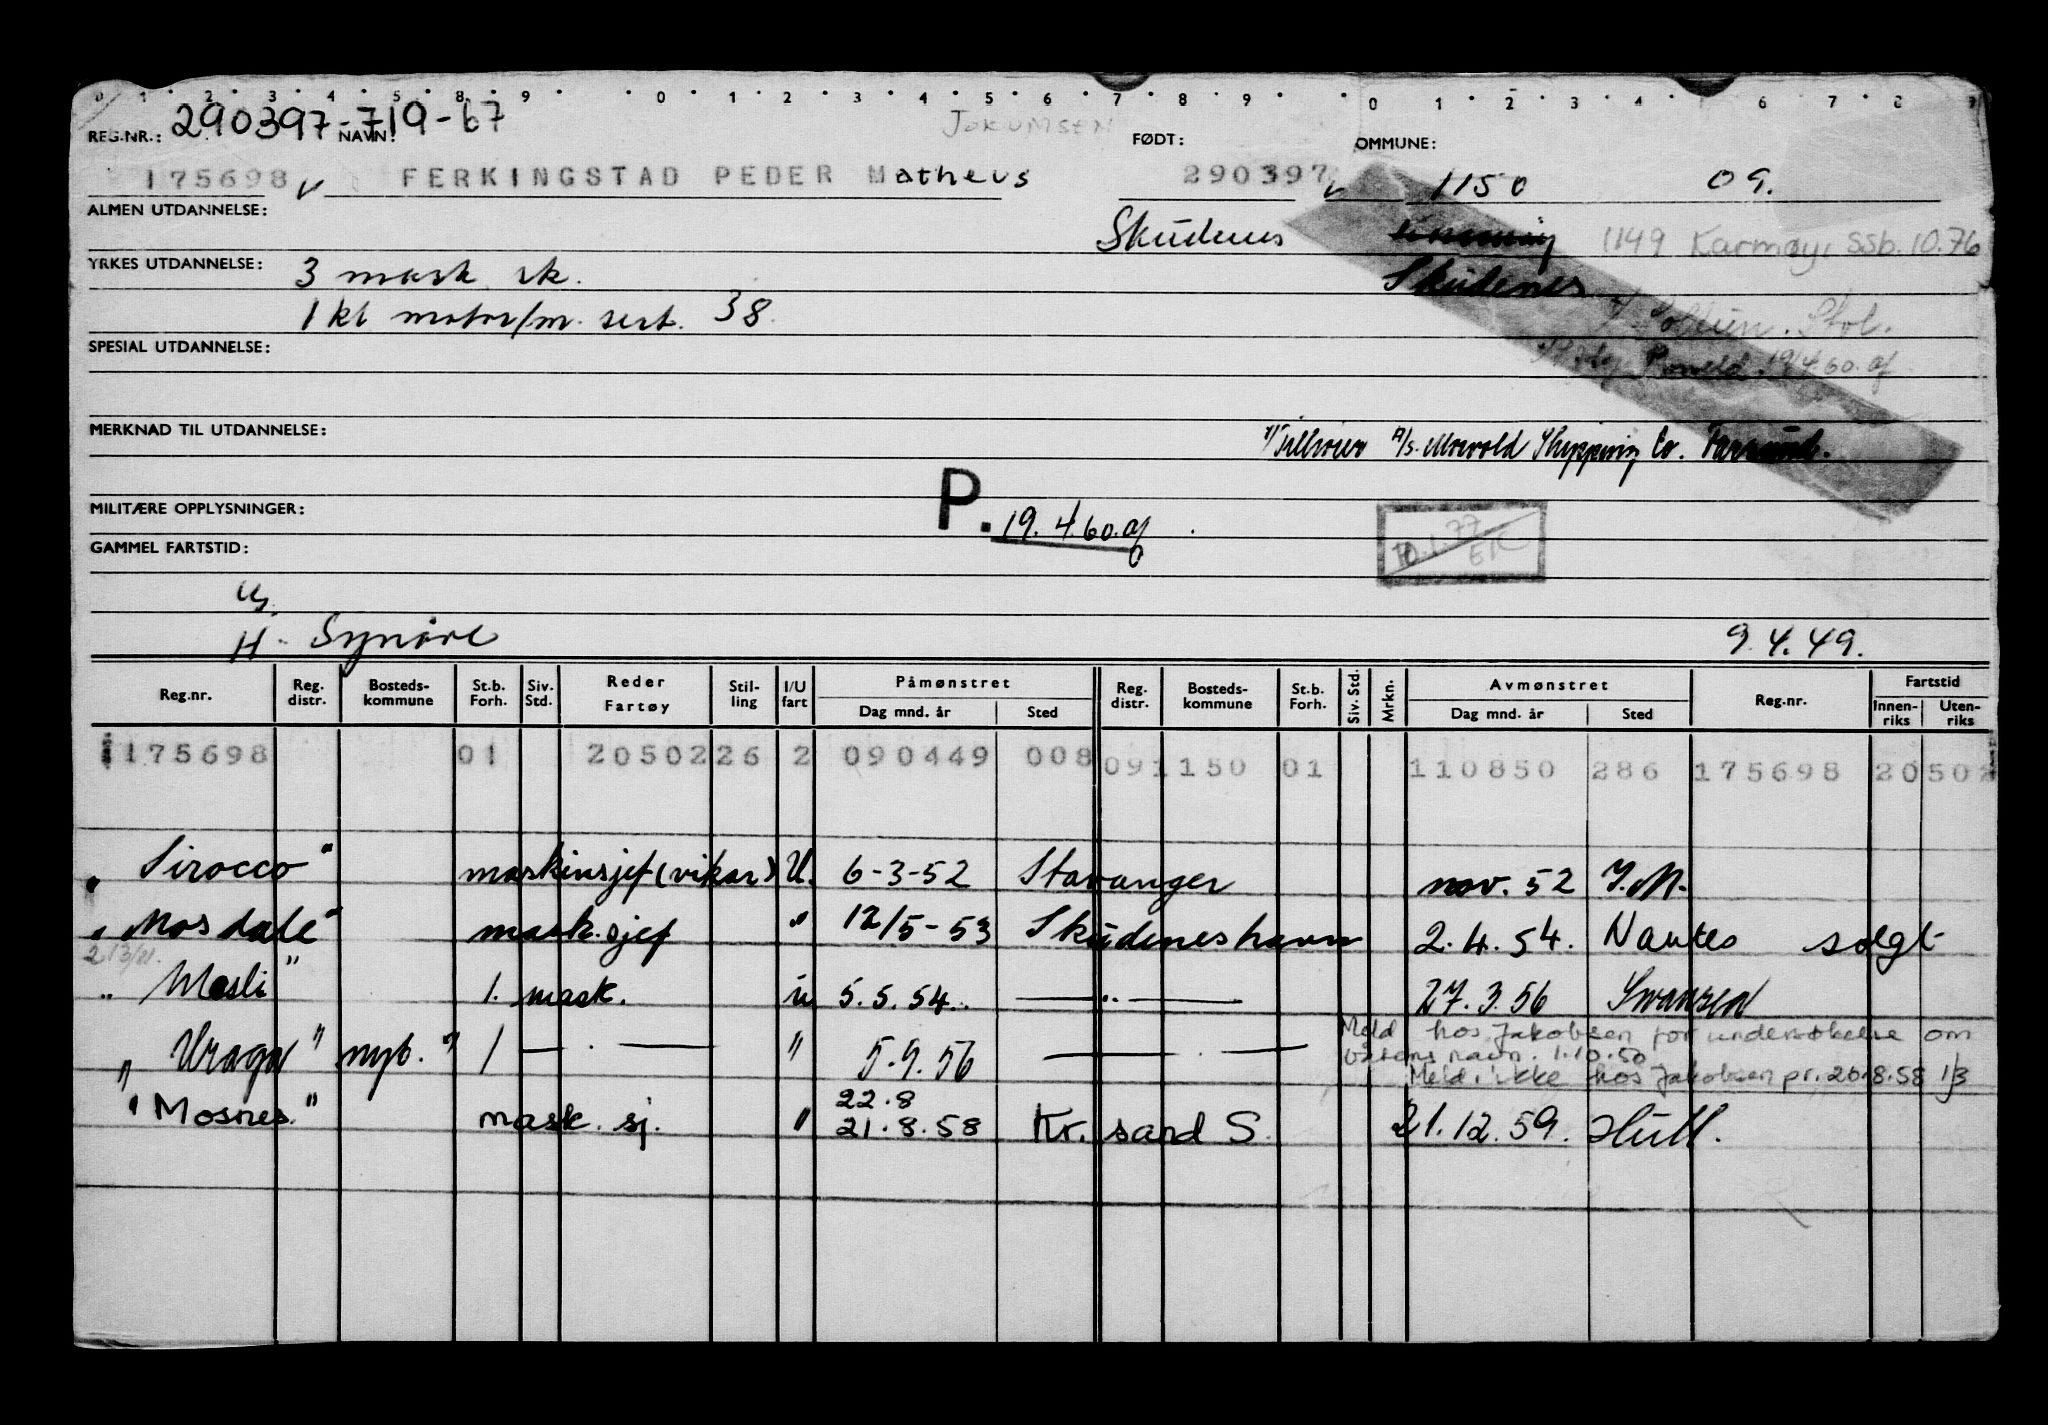 0 1 2 3 4 5 8 9 0 1 2 3 4 5 6 7 8 9 0 1 2 3 4 5 6 7 8 9
REG.NR.: 290397-719-67 NAVN: Jokumsen FØDT: OMMUNE:
175698 FERKINGSTAD PEDER Matheus 290397 1150 09.
ALMEN UTDANNELSE:
Skudenes 1149 Karmøy, SSB. 10.76
YRKES UTDANNELSE: 3 mask sk. Skudenes
1 kl motor/m. sert. 38
SPESIAL UTDANNELSE:
19/4 60. af
MERKNAD TIL UTDANNELSE: A/s. Mosvold Shipping Co. Farsund.
MILITÆRE OPPLYSNINGER: P. 19.4.60. af
10.1.77
GAMMEL FARTSTID:
U.
H. Synøve 9.4.49.
Reg.nr. Reg. distr. Bosteds-kommune St.b. Forh. Siv. Std. Reder Fartøy Stil-ling I/U fart Påmønstret Dag mnd. år Sted Reg. distr. Bosteds-kommune St.b. Forh. Siv. Std. Mrkn. Avmønstret Dag mnd. år Sted Reg.nr. Fartstid Innen-riks Uten-riks
175698 01 20502 26 2 090449 008 09 1150 01 110850 286 175698 20502
"Sirocco" maskinsjef (vikar) U. 6-3-52 Stavanger nov. 52 Y.M.
"Mosdale" mask.sjef " 12/5-53 Skudeneshavn 2.4.54. Nantes solgt
"Mosli" 1. mask. u 5.5.54. —"— 27.3.56 Swansea
Meld hos Jakobsen for undersøkelse om
"Uraga" nyb." 1 — . — " 5.9.56 — . — båtens navn. 1.10.50
Meld. ikke hos Jakobsen pr. 20.8.58 1/3
22.8
"Mosnes." mask. sj. " 21.8.58 Kr. sand S. 21.12.59. Hull.